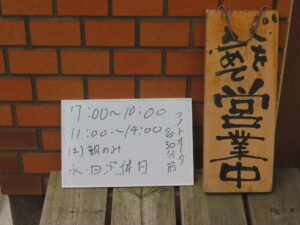 17:00〜10:00
11:00〜14:00
(土)朝のみ
火・日定休日
ラストオーダー
各30分前
営業中